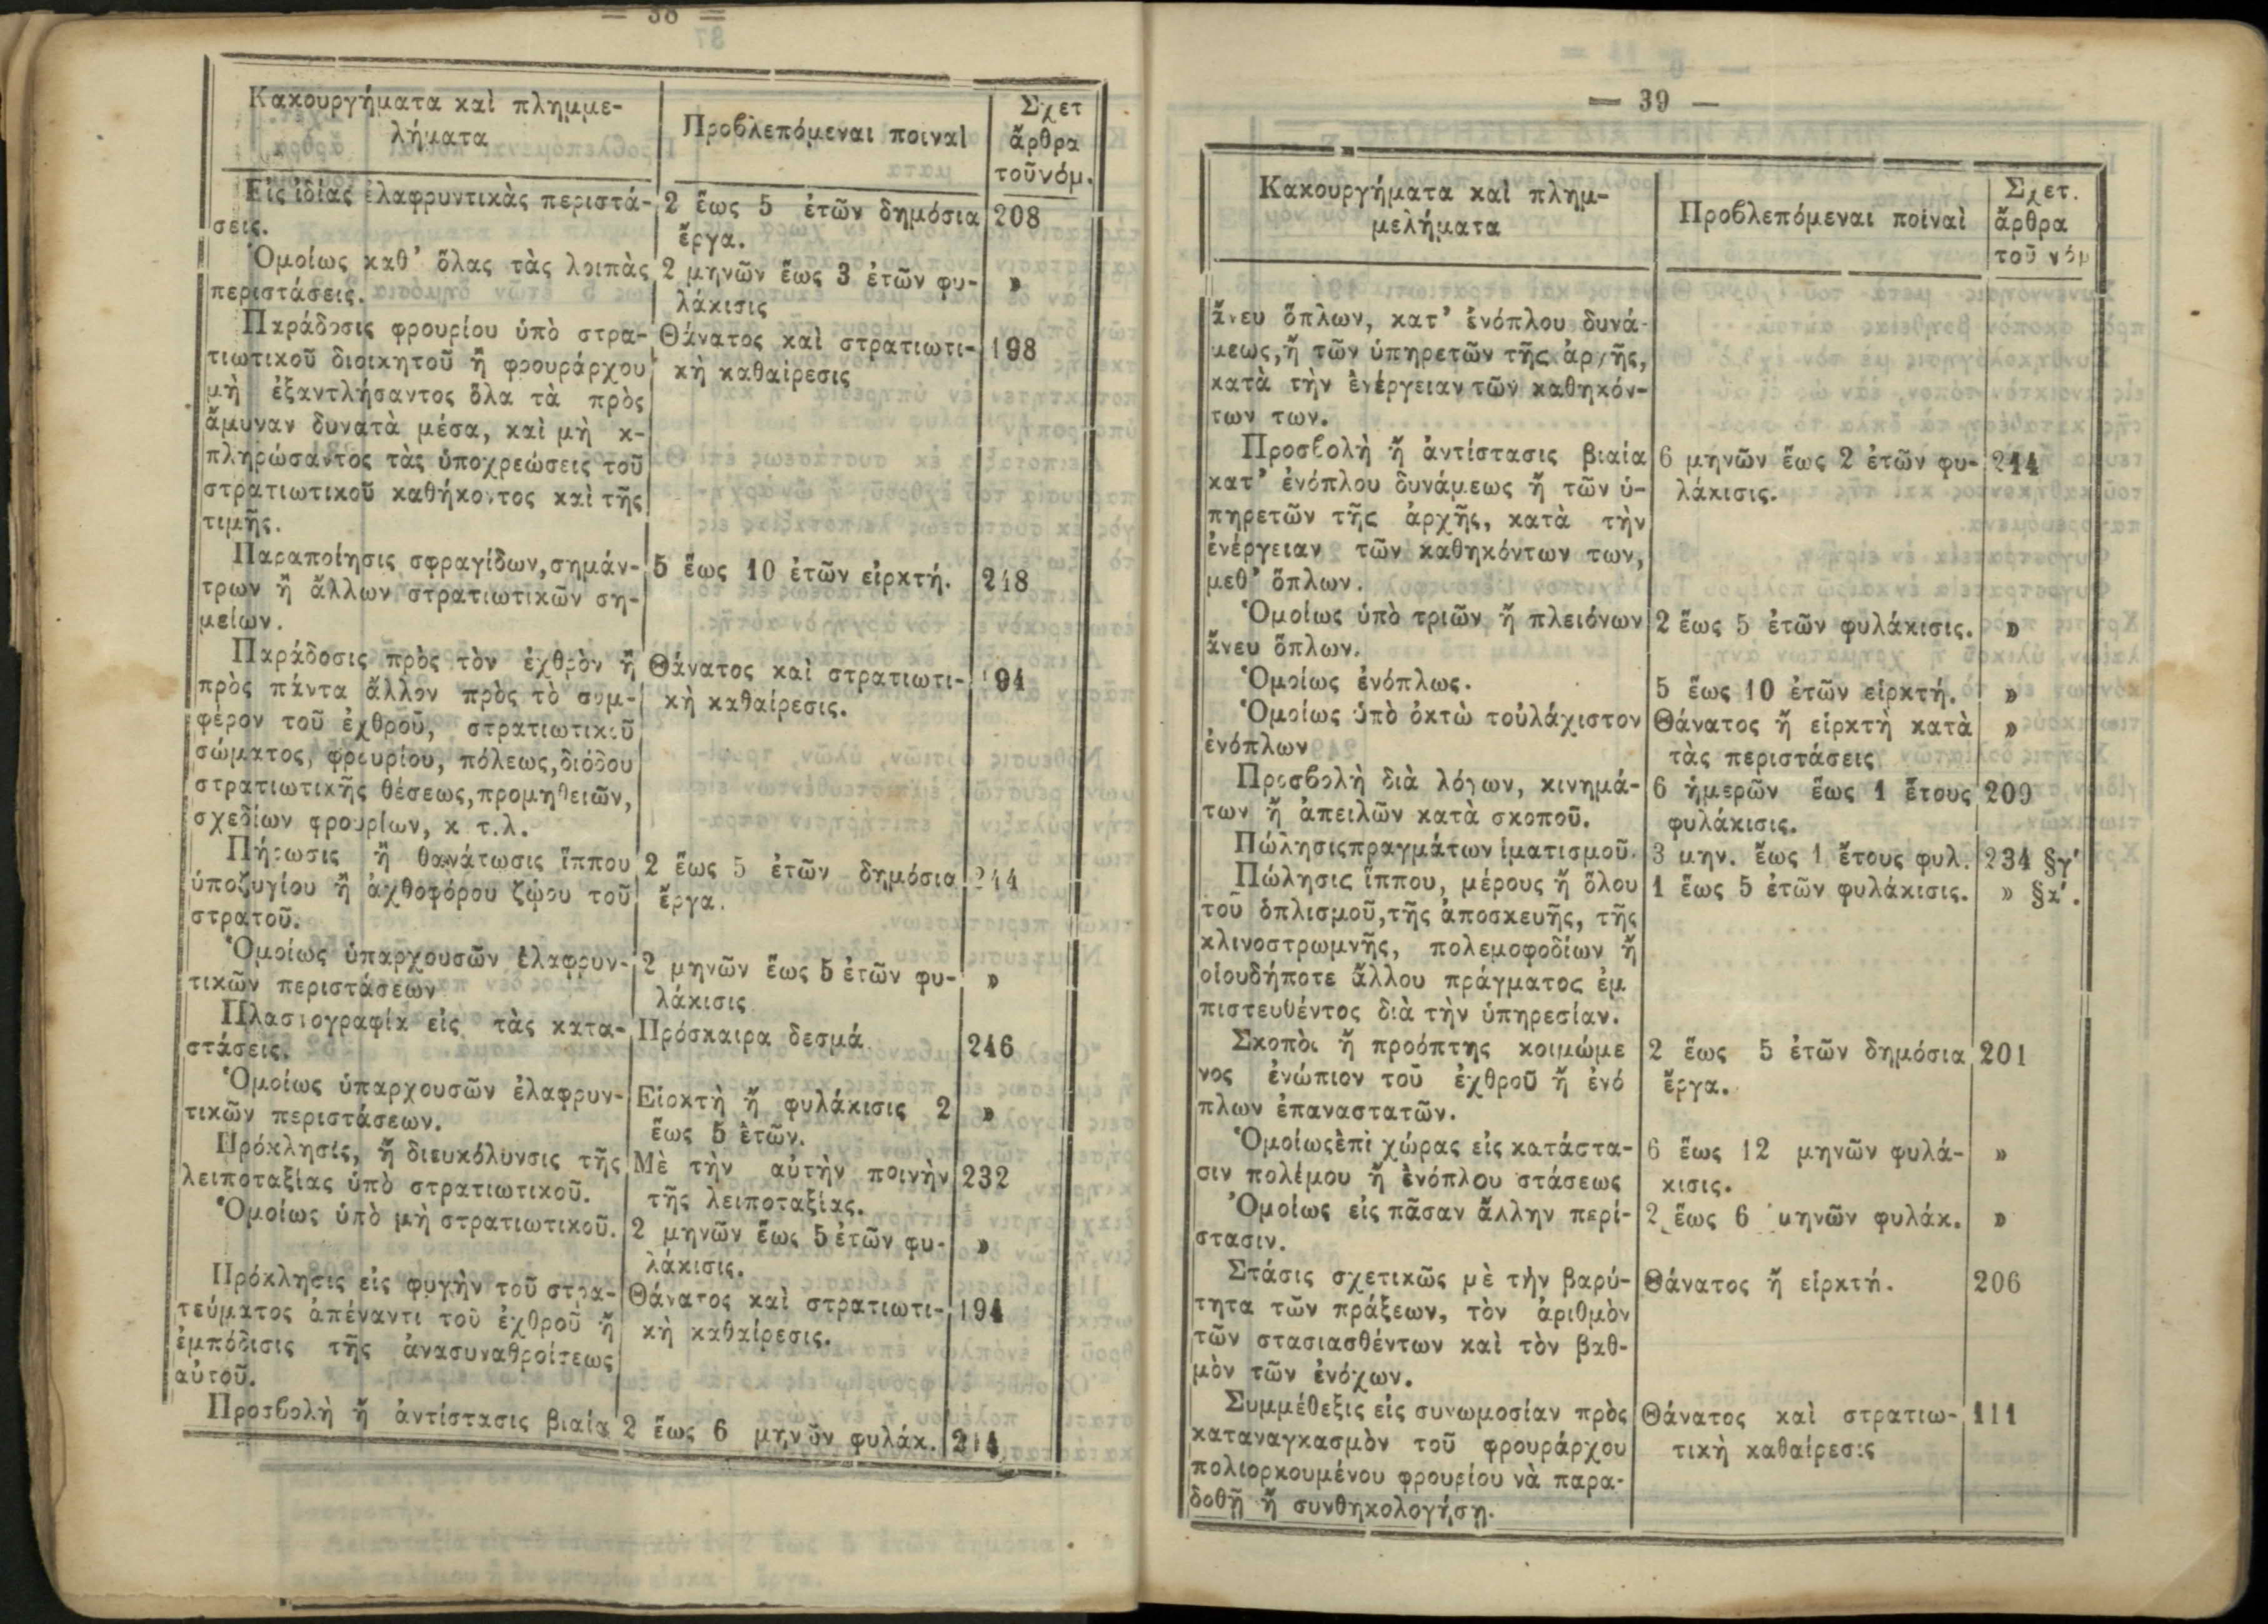 — 38 —
Κακουργήματα καὶ πλημμε-
λήματα
Προβλεπόμεναι ποιναὶ
Σχετ
ἄρθρα
τοῦ νόμ.
Εἰς ἰδίας ἐλαφρυντικὰς περιστά- 2 ἕως 5 ἐτῶν δημόσια 208
σεις. ἔργα.
Ὁμοίως καθ' ὅλας τὰς λοιπὰς 2 μηνῶν ἕως 3 ἐτῶν φυ- »
περιστάσεις. λάκισις
Παράδοσις φρουρίου ὑπὸ στρα- Θάνατος καὶ στρατιωτι- 198
τιωτικοῦ διοικητοῦ ἢ φρουράρχου κὴ καθαίρεσις
μὴ ἐξαντλήσαντος ὅλα τὰ πρὸς
ἄμυναν δυνατὰ μέσα, καὶ μὴ κ-
πληρώσαντος τὰς ὑποχρεώσεις τοῦ
στρατιωτικοῦ καθήκοντος καὶ τῆς
τιμῆς.
Παραποίησις σφραγίδων, σημάν- 5 ἕως 10 ἐτῶν εἱρκτή. 248
τρων ἢ ἄλλων στρατιωτικῶν ση-
μείων.
Παράδοσις πρὸς τὸν ἐχθρὸν ἢ Θάνατος καὶ στρατιωτι- 194
πρὸς πάντα ἄλλον πρὸς τὸ συμ- κὴ καθαίρεσις.
φέρον τοῦ ἐχθροῦ, στρατιωτικοῦ
σώματος, φρουρίου, πόλεως, διόδου
στρατιωτικῆς θέσεως, προμηθειῶν,
σχεδίων φρουρίων, κ τ.λ.
Πήρωσις ἢ θανάτωσις ἵππου 2 ἕως 5 ἐτῶν δημόσια 244
ὑποζυγίου ἢ ἀχθοφόρου ζῴου τοῦ ἔργα.
στρατοῦ.
Ὁμοίως ὑπαρχουσῶν ἐλαφρυν- 2 μηνῶν ἕως 5 ἐτῶν φυ- »
τικῶν περιστάσεων λάκισις
Πλαστογραφία εἰς τὰς κατα- Πρόσκαιρα δεσμά 246
στάσεις.
Ὁμοίως ὑπαρχουσῶν ἐλαφρυν- Εἱρκτὴ ἢ φυλάκισις 2 »
τικῶν περιστάσεων. ἕως 5 ἐτῶν.
Πρόκλησις, ἢ διευκόλυνσις τῆς Μὲ τὴν αὐτὴν ποινὴν 232
λειποταξίας ὑπὸ στρατιωτικοῦ. τῆς λειποταξίας.
Ὁμοίως ὑπὸ μὴ στρατιωτικοῦ. 2 μηνῶν ἕως 5 ἐτῶν φυ- »
λάκισις.
Πρόκλησις εἰς φυγὴν τοῦ στρα- Θάνατος καὶ στρατιωτι- 194
τεύματος ἀπέναντι τοῦ ἐχθροῦ ἢ κὴ καθαίρεσις.
ἐμπόδισις τῆς ἀνασυναθροίσεως
αὐτοῦ.
Προσβολὴ ἢ ἀντίστασις βιαία 2 ἕως 6 μηνῶν φυλάκ. 214
— 39 —
Κακουργήματα καὶ πλημ-
μελήματα
Προβλεπόμεναι ποιναὶ
Σχετ.
ἄρθρα
τοῦ νόμ
ἄνευ ὅπλων, κατ' ἐνόπλου δυνά-
μεως, ἢ τῶν ὑπηρετῶν τῆς ἀρχῆς,
κατὰ τὴν ἐνέργειαν τῶν καθηκόν-
των των.
Προσβολὴ ἢ ἀντίστασις βιαία 6 μηνῶν ἕως 2 ἐτῶν φυ- 214
κατ' ἐνόπλου δυνάμεως ἢ τῶν ὑ- λάκισις.
πηρετῶν τῆς ἀρχῆς, κατὰ τὴν
ἐνέργειαν τῶν καθηκόντων των,
μεθ' ὅπλων.
Ὁμοίως ὑπὸ τριῶν ἢ πλειόνων 2 ἕως 5 ἐτῶν φυλάκισις. »
ἄνευ ὅπλων.
Ὁμοίως ἐνόπλως. 5 ἕως 10 ἐτῶν εἱρκτή. »
Ὁμοίως ὑπὸ ὀκτὼ τοὐλάχιστον Θάνατος ἢ εἱρκτὴ κατὰ »
ἐνόπλων τὰς περιστάσεις
Προσβολὴ διὰ λόγων, κινημά- 6 ἡμερῶν ἕως 1 ἔτους 209
των ἢ ἀπειλῶν κατὰ σκοποῦ. φυλάκισις.
Πώλησις πραγμάτων ἱματισμοῦ. 3 μην. ἕως 1 ἔτους φυλ. 234 §γ'
Πώλησις ἵππου, μέρους ἢ ὅλου 1 ἕως 5 ἐτῶν φυλάκισις. » §α'.
τοῦ ὁπλισμοῦ, τῆς ἀποσκευῆς, τῆς
κλινοστρωμνῆς, πολεμοφοδίων ἢ
οἱουδήποτε ἄλλου πράγματος ἐμ
πιστευθέντος διὰ τὴν ὑπηρεσίαν.
Σκοπὸς ἢ προόπτης κοιμώμε 2 ἕως 5 ἐτῶν δημόσια 201
νος ἐνώπιον τοῦ ἐχθροῦ ἢ ἐνό ἔργα.
πλων ἐπαναστατῶν.
Ὁμοίως ἐπὶ χώρας εἰς κατάστα- 6 ἕως 12 μηνῶν φυλά- »
σιν πολέμου ἢ ἐνόπλου στάσεως κισις.
Ὁμοίως εἰς πᾶσαν ἄλλην περί- 2 ἕως 6 μηνῶν φυλάκ. »
στασιν.
Στάσις σχετικῶς μὲ τὴν βαρύ- Θάνατος ἢ εἱρκτή. 206
τητα τῶν πράξεων, τὸν ἀριθμὸν
τῶν στασιασθέντων καὶ τὸν βαθ-
μὸν τῶν ἐνόχων.
Συμμέθεξις εἰς συνωμοσίαν πρὸς Θάνατος καὶ στρατιω- 111
καταναγκασμὸν τοῦ φρουράρχου τικὴ καθαίρεσις
πολιορκουμένου φρουρίου νὰ παρα-
δοθῇ ἢ συνθηκολογήσῃ.